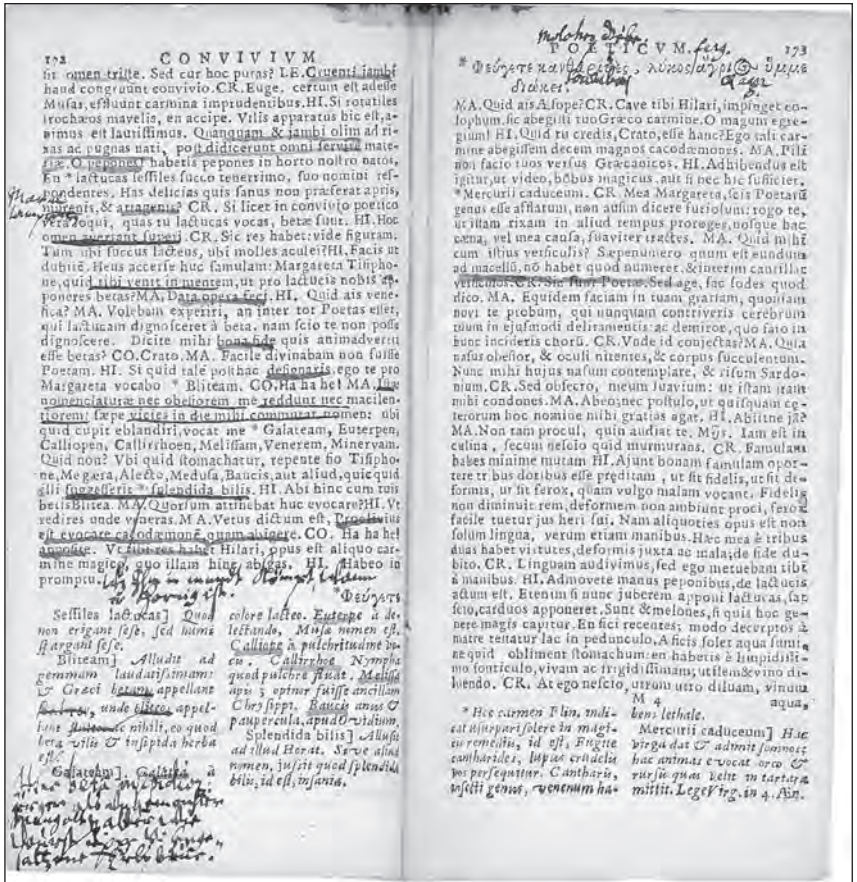 172 CONVIVIUM
sit omen triste. Sed cur hoc putas? LE. Cruenti jambi
haud congruunt convivio. CR. Euge. certum est adesse
Musas, effluunt carmina imprudentibus. HI. Si rotatiles
trochæos mavelis, en accipe. Vilis apparatus hic est, a-
nimus est lautissimus. Quanquam & jambi olim ad ri-
xas ac pugnas nati, post didicerunt omni servire mate-
riæ. O pepones! habetis pepones in horto nostro natos,
En * lactucas sessiles succo tenerrimo, suo nomini res-
pondentes. Has delicias quis sanus non præferat apris,
murenis, & attagenis? CR. Si licet in convivio poetico
vera loqui, quas tu lactucas vocas, betæ sunt. HI. Hoc
omen avertant superi. CR. Sic res habet: vide figuram.
Tum ubi succus lacteus, ubi molles aculei? HI. Facis ut
dubitē. Heus accerse huc famulam: Margareta Tisipho-
ne, quid tibi venit in mentem, ut pro lactucis nobis ap-
poneres betas? MA. Data opera feci. HI. Quid ais vene-
fica? MA. Volebam experiri, an inter tot Poetas esset,
qui lactucam dignosceret à beta. nam scio te non posse
dignoscere. Dicite mihi bona fide quis animadvertit
esse betas? CO. Crato. MA. Facile divinabam non fuisse
Poetam. HI. Si quid tale posthac designaris, ego te pro
Margareta vocabo * Bliteam. CO. Ha ha he! MA. Istæ
nomenclaturæ nec obesiorem me reddunt nec macilen-
tiorem: sæpe vicies in die mihi commutat nomen: ubi
quid cupit eblandiri, vocat me * Galateam, Euterpen,
Calliopen, Callirrhoen, Melissam, Venerem, Minervam.
Quid non? Vbi quid stomachatur, repente fio Tisipho-
ne, Megæra, Alecto, Medusa, Baucis, aut aliud, quicquid
illi suggesserit * splendida bilis. HI. Abi hinc cum tuis
betis Blitea. MA. Quorsum attinebat huc evocare? HI. Vt
redires unde veneras. MA. Vetus dictum est, Proclivius
est evocare cacodæmonē quam abigere. CO. Ha ha he!
apposite. Vt tibi res habet Hilari, opus est aliquo car-
mine magico, quo illam hinc abigas. HI. Habeo in
promptu.
*Φεύγετε
Sessiles lactucas] Quod
non erigant sese, sed humi
spargant sese.
Bliteam] Alludit ad
gemmam laudatissimam:
& Græci betam appellant
unde bliteos appel-
ac nihili, eo quod
beta vilis & insipida herba
est.
Galateam]. Galatea à
colore lacteo. Euterpe à de-
lectando, Musæ nomen est.
Calliope à pulchritudine vo-
cis. Callirrhoe Nympha
quod pulchre fluat. Melissa
apis & opinor fuisse ancillam
Chrysippi. Baucis anus &
paupercula, apud Ovidium.
Splendida bilis] Allusit
ad illud Horat. Sive aliud
nomen, jussit quod splendida
bilis, id est, insania.
POETICVM. 173
* Φεύγετε κανθαρίδες, λύκος ἄγριος ὔμμε
διώκει.
MA. Quid ais Æsope? CR. Cave tibi Hilari, impinget co-
lophum. sic abegisti tuo Græco carmine. O magum egre-
gium! HI. Quid tu credis, Crato, esse hanc? Ego tali car-
mine abegissem decem magnos cacodæmones. MA. Pili
non facio tuos versus Græcanicos. HI. Adhibendus est
igitur, ut video, bōbus magicus. aut si nec hic sufficiet.
*Mercurii caduceum. CR. Mea Margareta, scis Poetarū
genus esse afflatum, non ausim dicere furiosum: rogo te,
ut istam rixam in aliud tempus proroges, nosque hac
cœna, vel mea causa, suaviter tractes. MA. Quid mihi
cum istius versiculis? Sæpenumero quum est eundum
ad macellū, nō habet quod numeret. & interim cantillat
versiculos. CR. Sic sunt Poetæ. Sed age, fac sodes quod
dico. MA. Equidem faciam in tuam gratiam, quoniam
novi te probum, qui nunquam contriveris cerebrum
tuum in ejusmodi deliramentis: ac demiror, quo fato in
hunc incideris chorū. CR. Vnde id conjectas? MA. Quia
nasus obesior, & oculi nitentes, & corpus succulentum.
Nunc mihi hujus nasum contemplare, & risum Sardo-
nium. CR. Sed obsecro, meum suavium: ut istam iram
mihi condones. MA. Abeo; nec postulo, ut quisquam cę-
terorum hoc nomine mihi gratias agat. HI. Abiitne jā?
MA. Non tam procul, quin audiat te. Mӱs. Iam est in
culina, secum nescio quid murmurans. CR. Famulam
habes minime mutam HI. Ajunt bonam famulam opor-
tere tribus dotibus esse prędítam, ut sit fidelis, ut sit de-
formis, ut sit ferox, quam vulgo malam vocant. Fidelis
non diminuit rem, deformem non ambiunt proci, ferox
facile tuetur jus heri sui. Nam aliquoties opus est non
solum lingua, verum etiam manibus. Hæc mea è tribus
duas habet virtutes, deformis juxta ac mala; de fide du-
bito. CR. Linguam audivimus, sed ego metuebam tibi
à manibus. HI. Admovete manus peponibus, de lactucis
actum est. Etenim si nunc juberem apponi lactucas, sat
scio, carduos apponeret. Sunt & melones, si quis hoc ge-
nere magis capitur. En fici recentes; modo decerptos à
matre testatur lac in pedunculo. A ficis solet aqua sumi,
ne quid obliment stomachum: en habetis è limpidissi-
mo fonticulo, vivam ac frigidissimam, utilem & vino di-
luendo. CR. At ego nescio, utrum utro diluam, vinum
M 4 aqua,
* Hoc carmen Plin. indi-
cat usurpari solere in magi-
co remedio, id est, Fugite
cantharides, lupus crudelis
vos persequitur. Cantharis,
insecti genus, venenum ha-
bens lethale.
Mercurii caduceum] Hac
virga dat & admit somnos:
hac animas evocat orco &
rursū quas velit in tartara
mittit. Lege Virg. in 4. Æn.